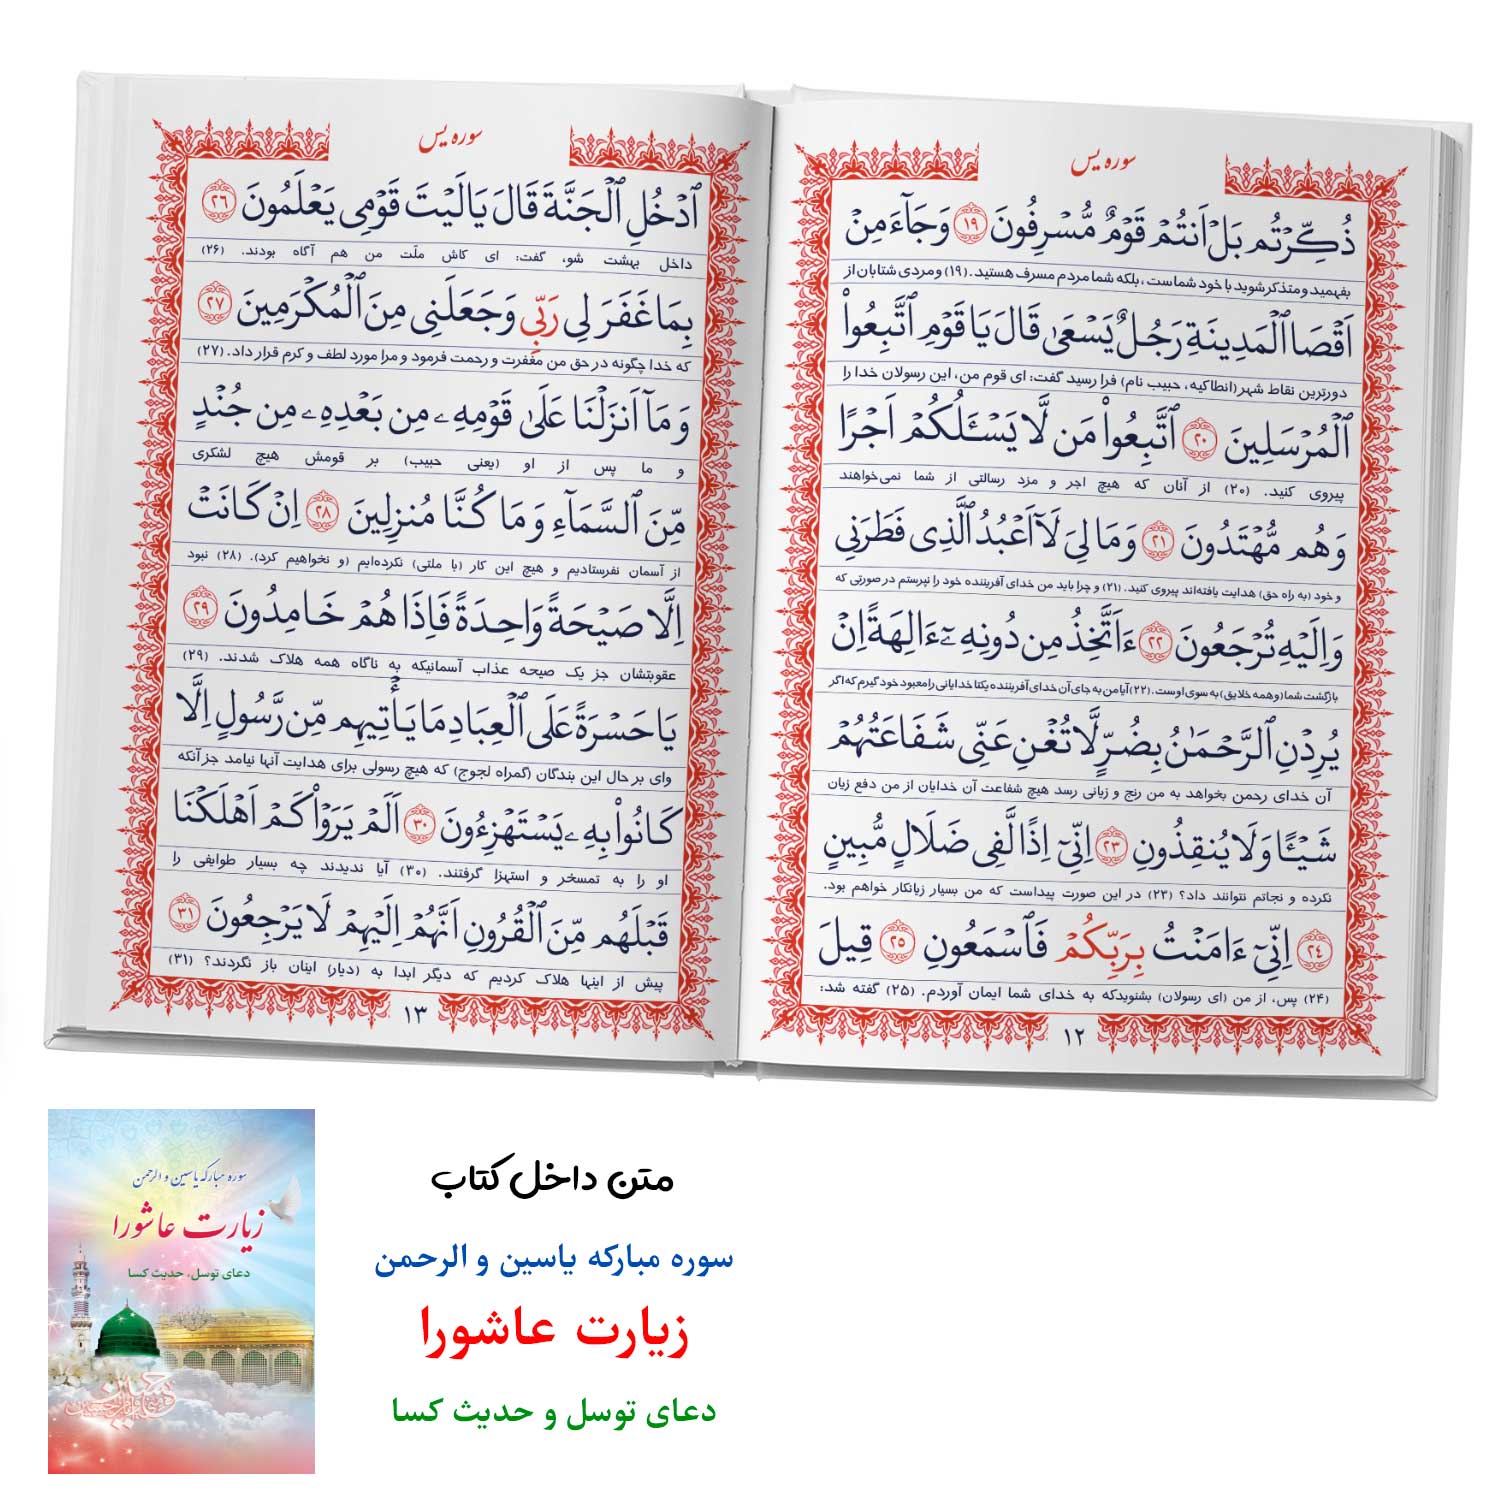 سوره یس
ذُكِّرْتُم بَلْ اَنتُمْ قَوْمٌ مُّسْرِفُونَ ﴿١٩﴾ وَجَآءَ مِنْ
بفهمید و متذکر شوید با خود شماست، بلکه شما مردم مسرف هستید. (۱۹) و مردی شتابان از
اَقْصَا ٱلْمَدِينَةِ رَجُلٌ يَسْعَىٰ قَالَ يَا قَوْمِ ٱتَّبِعُواْ
دورترین نقاط شهر (انطاکیه، حبیب نام) فرا رسید گفت: ای قوم من، این رسولان خدا را
ٱلْمُرْسَلِينَ ﴿٢٠﴾ ٱتَّبِعُواْ مَن لَّا يَسْـَٔلُكُمْ اَجْرًا
پیروی کنید. (۲۰) از آنان که هیچ اجر و مزد رسالتی از شما نمی‌خواهند
وَهُم مُّهْتَدُونَ ﴿٢١﴾ وَمَا لِيَ لَآ اَعْبُدُ ٱلَّذِى فَطَرَنِى
و خود (به راه حق) هدایت یافته‌اند پیروی کنید. (۲۱) و چرا باید من خدای آفریننده خود را نپرستم در صورتی که
وَاِلَيْهِ تُرْجَعُونَ ﴿٢٢﴾ ءَاَتَّخِذُ مِن دُونِهِۦٓ ءَالِهَةً اِنْ
بازگشت شما (و همه خلایق) به سوی اوست. (۲۲) آیا من به جای آن خدای آفریننده یکتا خدایانی را معبود خود گیرم که اگر
يُرِدْنِ ٱلرَّحْمَـٰنُ بِضُرٍّ لَّا تُغْنِ عَنِّى شَفَاعَتُهُمْ
آن خدای رحمن بخواهد به من رنج و زیانی رسد هیچ شفاعت آن خدایان از من دفع زیان
شَيْـًٔا وَلَا يُنقِذُونِ ﴿٢٣﴾ اِنِّىٓ اِذًا لَّفِى ضَلَالٍ مُّبِينٍ
نکرده و نجاتم نتوانند داد؟ (۲۳) در این صورت پیداست که من بسیار زیانکار خواهم بود.
﴿٢٤﴾ اِنِّىٓ ءَامَنْتُ بِرَبِّكُمْ فَٱسْمَعُونِ ﴿٢٥﴾ قِيلَ
(۲۴) پس، از من (ای رسولان) بشنویدکه به خدای شما ایمان آوردم. (۲۵) گفته شد:
۱۲
سوره یس
ٱدْخُلِ ٱلْجَنَّةَ قَالَ يَا لَيْتَ قَوْمِى يَعْلَمُونَ ﴿٢٦﴾
داخل بهشت شو، گفت: ای کاش ملّت من هم آگاه بودند. (۲۶)
بِمَا غَفَرَ لِى رَبِّى وَجَعَلَنِى مِنَ ٱلْمُكْرَمِينَ ﴿٢٧﴾
که خدا چگونه در حق من مغفرت و رحمت فرمود و مرا مورد لطف و کرم قرار داد. (۲۷)
وَمَآ اَنزَلْنَا عَلَىٰ قَوْمِهِۦ مِن بَعْدِهِۦ مِن جُندٍ
و ما پس از او (یعنی حبیب) بر قومش هیچ لشکری
مِّنَ ٱلسَّمَآءِ وَمَا كُنَّا مُنزِلِينَ ﴿٢٨﴾ اِنْ كَانَتْ
از آسمان نفرستادیم و هیچ این کار (با ملتی) نکرده‌ایم (و نخواهیم کرد). (۲۸) نبود
اِلَّا صَيْحَةً وَاحِدَةً فَاِذَا هُمْ خَامِدُونَ ﴿٢٩﴾
عقوبتشان جز یک صیحه عذاب آسمانیکه به ناگاه همه هلاک شدند. (۲۹)
يَا حَسْرَةً عَلَى ٱلْعِبَادِ مَا يَأْتِيهِم مِّن رَّسُولٍ اِلَّا
وای بر حال این بندگان (گمراه لجوج) که هیچ رسولی برای هدایت آنها نیامد جز آنکه
كَانُواْ بِهِۦ يَسْتَهْزِءُونَ ﴿٣٠﴾ اَلَمْ يَرَوْاْ كَمْ اَهْلَكْنَا
او را به تمسخر و استهزا گرفتند. (۳۰) آیا ندیدند چه بسیار طوایفی را
قَبْلَهُم مِّنَ ٱلْقُرُونِ اَنَّهُمْ اِلَيْهِمْ لَا يَرْجِعُونَ ﴿٣١﴾
پیش از اینها هلاک کردیم که دیگر ابدا به (دیار) اینان باز نگردند؟ (۳۱)
۱۳
سوره مبارکه یاسین و الرحمن
زیارت عاشورا
دعای توسل، حدیث کسا
متن داخل کتاب
سوره مبارکه یاسین و الرحمن
زیارت عاشورا
دعای توسل و حدیث کسا